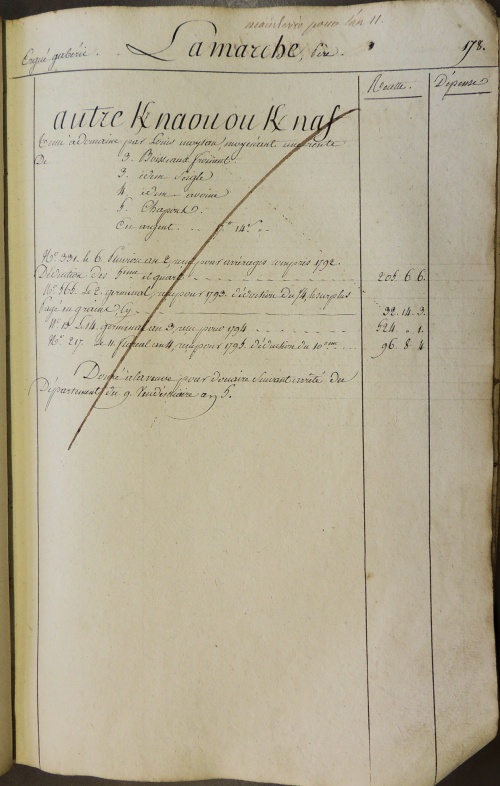 mainlevée pour l'an 11
Ergué gaberic. Lamarche, père. 178.
Recette. Dépense
autre K naou ou K nas
Tenu à domaine par Louis moyenant une rente
De 3. Boisseaux froment.
3. idem Seigle
4. idem avoine
5. Chapons.
En argent
N.° 331. le 6 pluviose an 2 reçu pour arrérages 1792.
Déduction des 5.eme et quart 205. 6. 6.
N.° 565. Le 2. germinal, reçu pour 1793. déduction du 1/4, le surplus
payé en graine, cy 32. 14. 3.
N.° 18. Le 14. germinal an 3. reçu pour 1794 524. „ 1.
N.° 217. Le 11. floréal an 4, reçu pour 1795. déduction du 10.eme 96. 8. 4
Donné à la veuve pour douaire suivant arrêté du
Département du 9. Vendémiaire an 5.